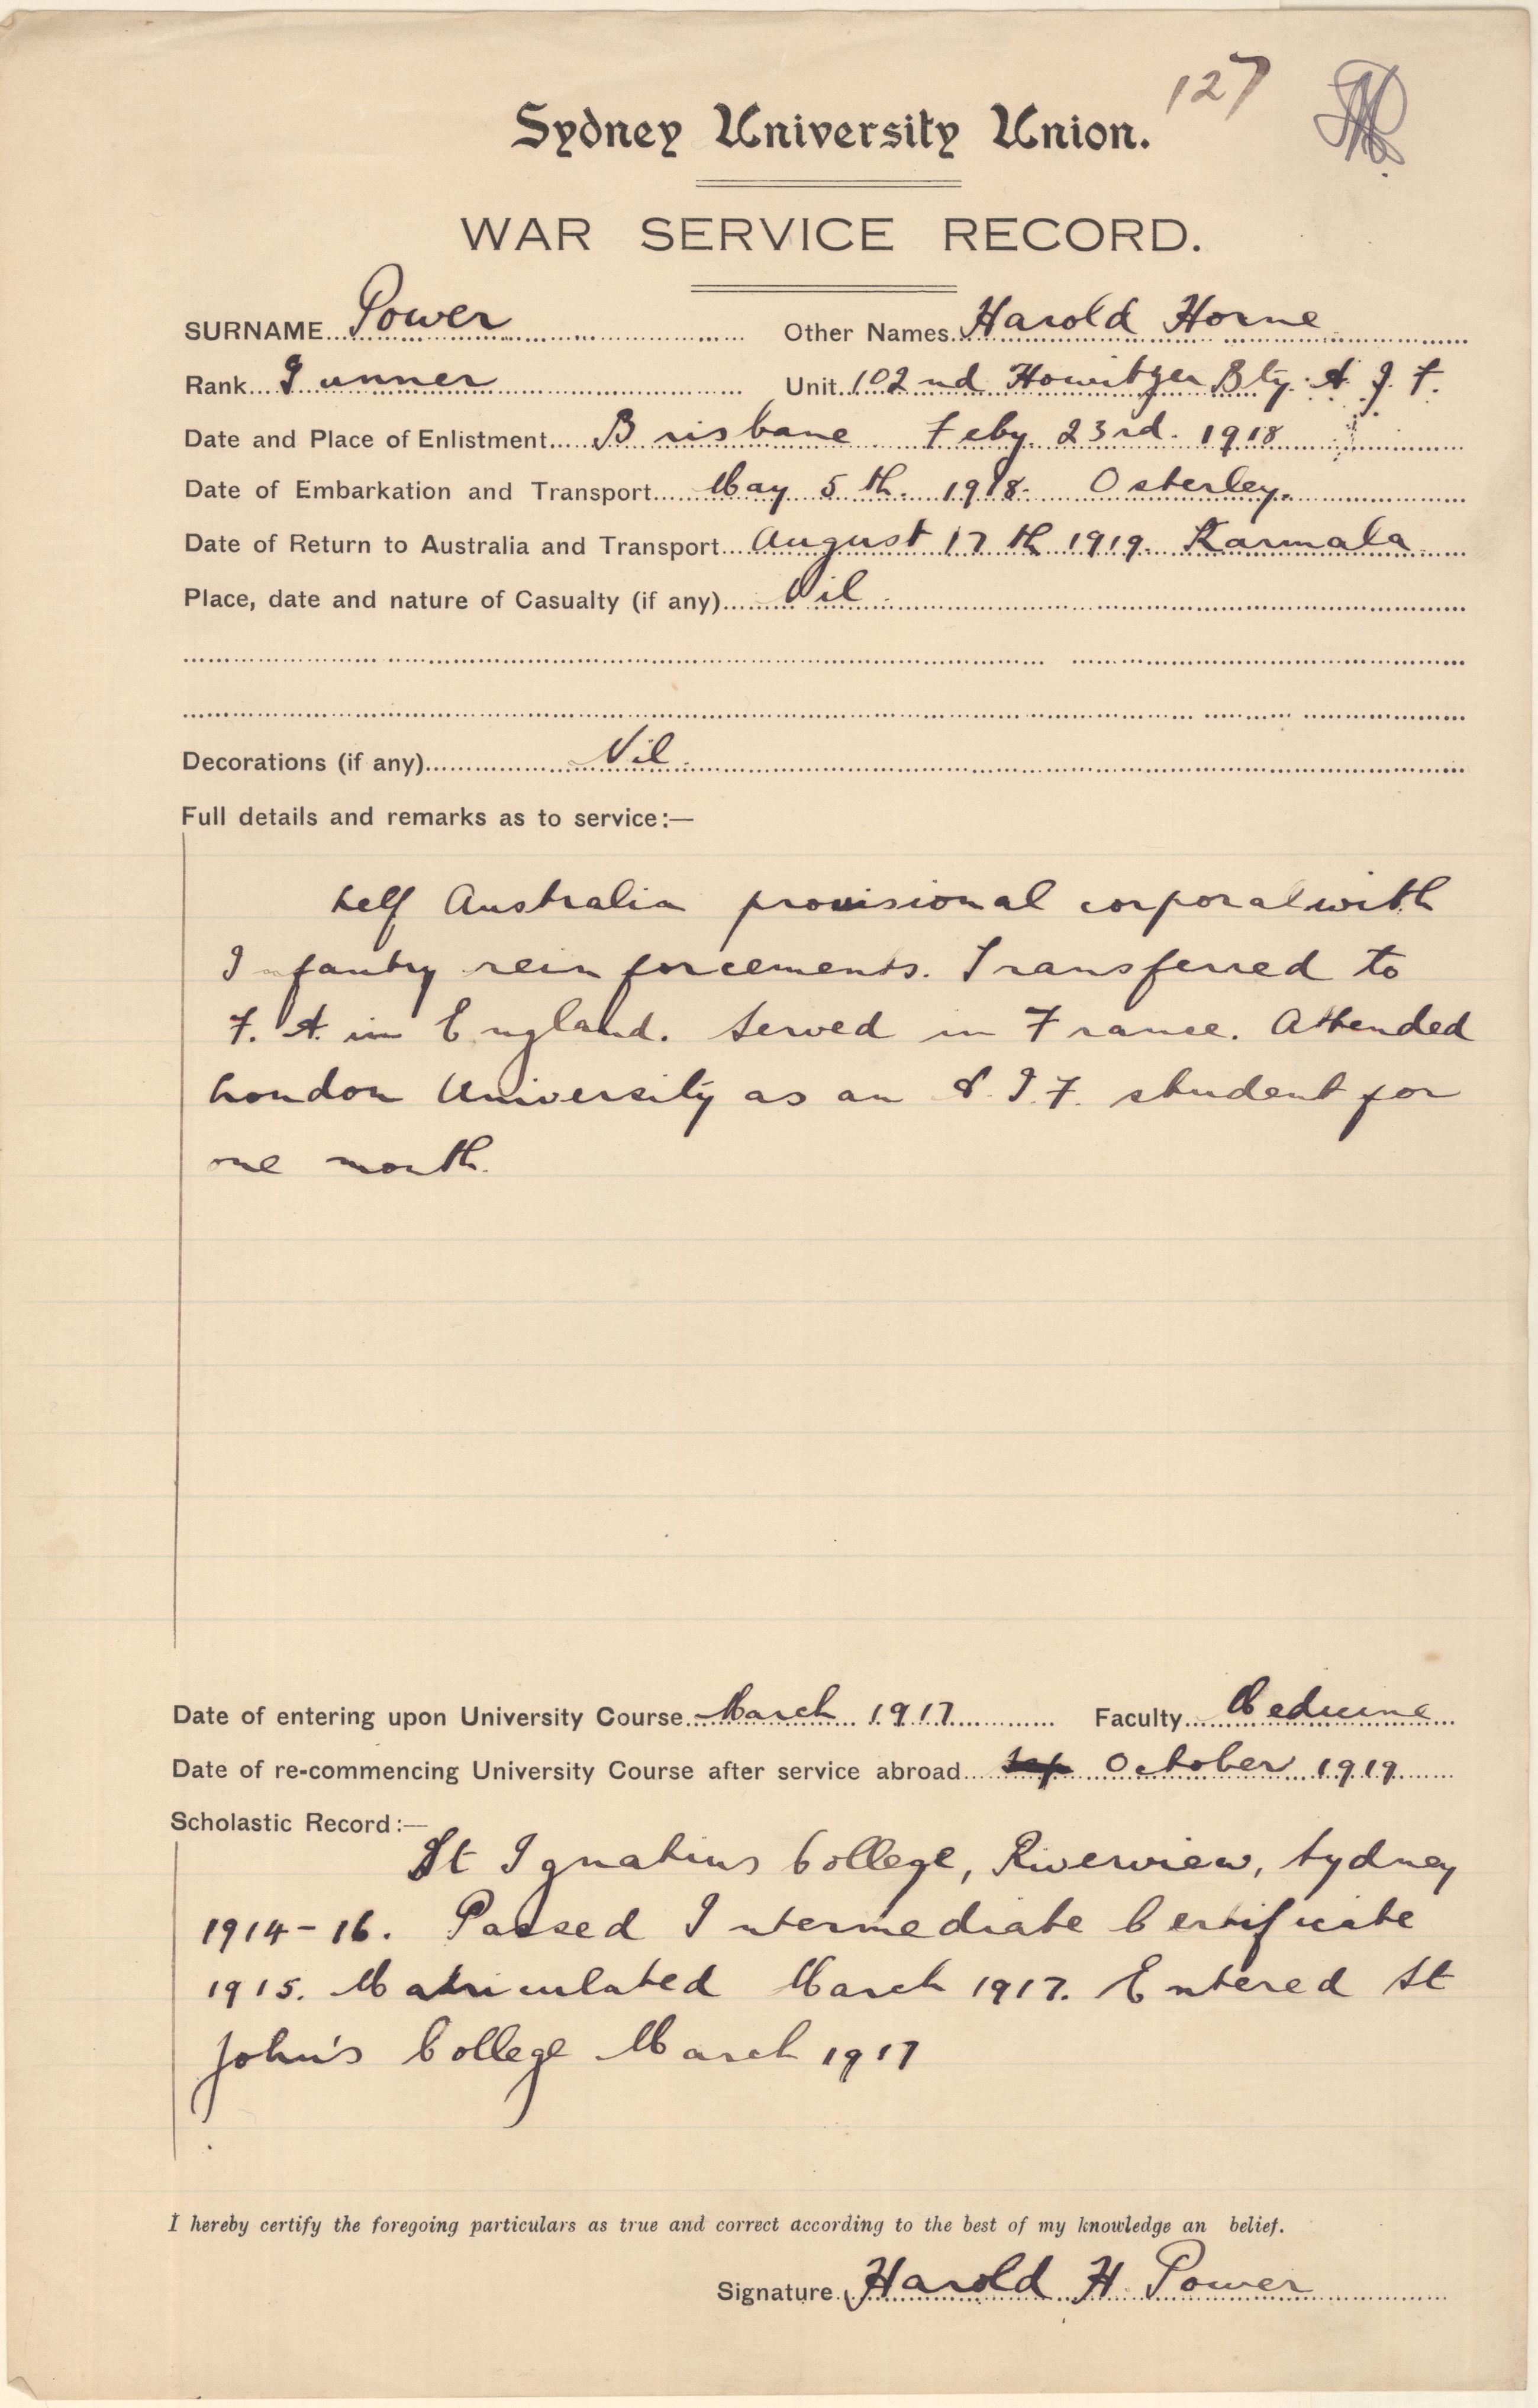 127
Sydney University Union.
WAR SERVICE RECORD.
SURNAME Power Other Names Harold Horne
Rank Gunner Unit 102nd Howitzer Bty. A. I. F.
Date and Place of Enlistment Brisbane Feby. 23rd. 1918
Date of Embarkation and Transport May 5th. 1918. Osterley.
Date of Return to Australia and Transport August 17th 1919. Karmala
Place, date and nature of Casualty (if any) Nil.
Decorations (if any) Nil.
Full details and remarks as to service:—
Left Australia provisional corporal with
Infantry reinforcements. Transferred to
F. A. in England. Served in France. Attended
London University as an A. I. F. student for
one month.
Date of entering upon University Course March 1917 Faculty Medicine
Date of re-commencing University Course after service abroad Sep October 1919
Scholastic Record:—
St Ignatius College, Riverview, Sydney
1914-16. Passed Intermediate Certificate
1915. Matriculated March 1917. Entered St
John's College March 1917
I hereby certify the foregoing particulars as true and correct according to the best of my knowledge an belief.
Signature Harold H. Power